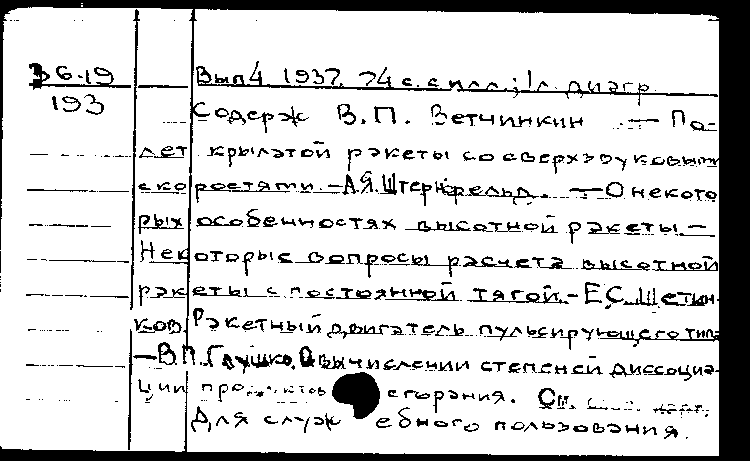 36.19 Вып 4 1937. 74 с. с илл.; 1 л. диагр.
193 Содерж В.П. Ветчинкин — По-
лет крылатой ракеты со сверхзвуковыми
скоростями. — А.Я. Штернфельд. — О некото
рых особенностях высотной ракеты. —
Некоторые вопросы расчета высотной
ракеты с постоянной тягой. — Е.С. Щетин-
ков. Ракетный двигатель пульсирующего типа
— В.П. Глушко. О вычислении степеней диссоциа-
ции продуктов сгорания. См.
Для служебного пользования.